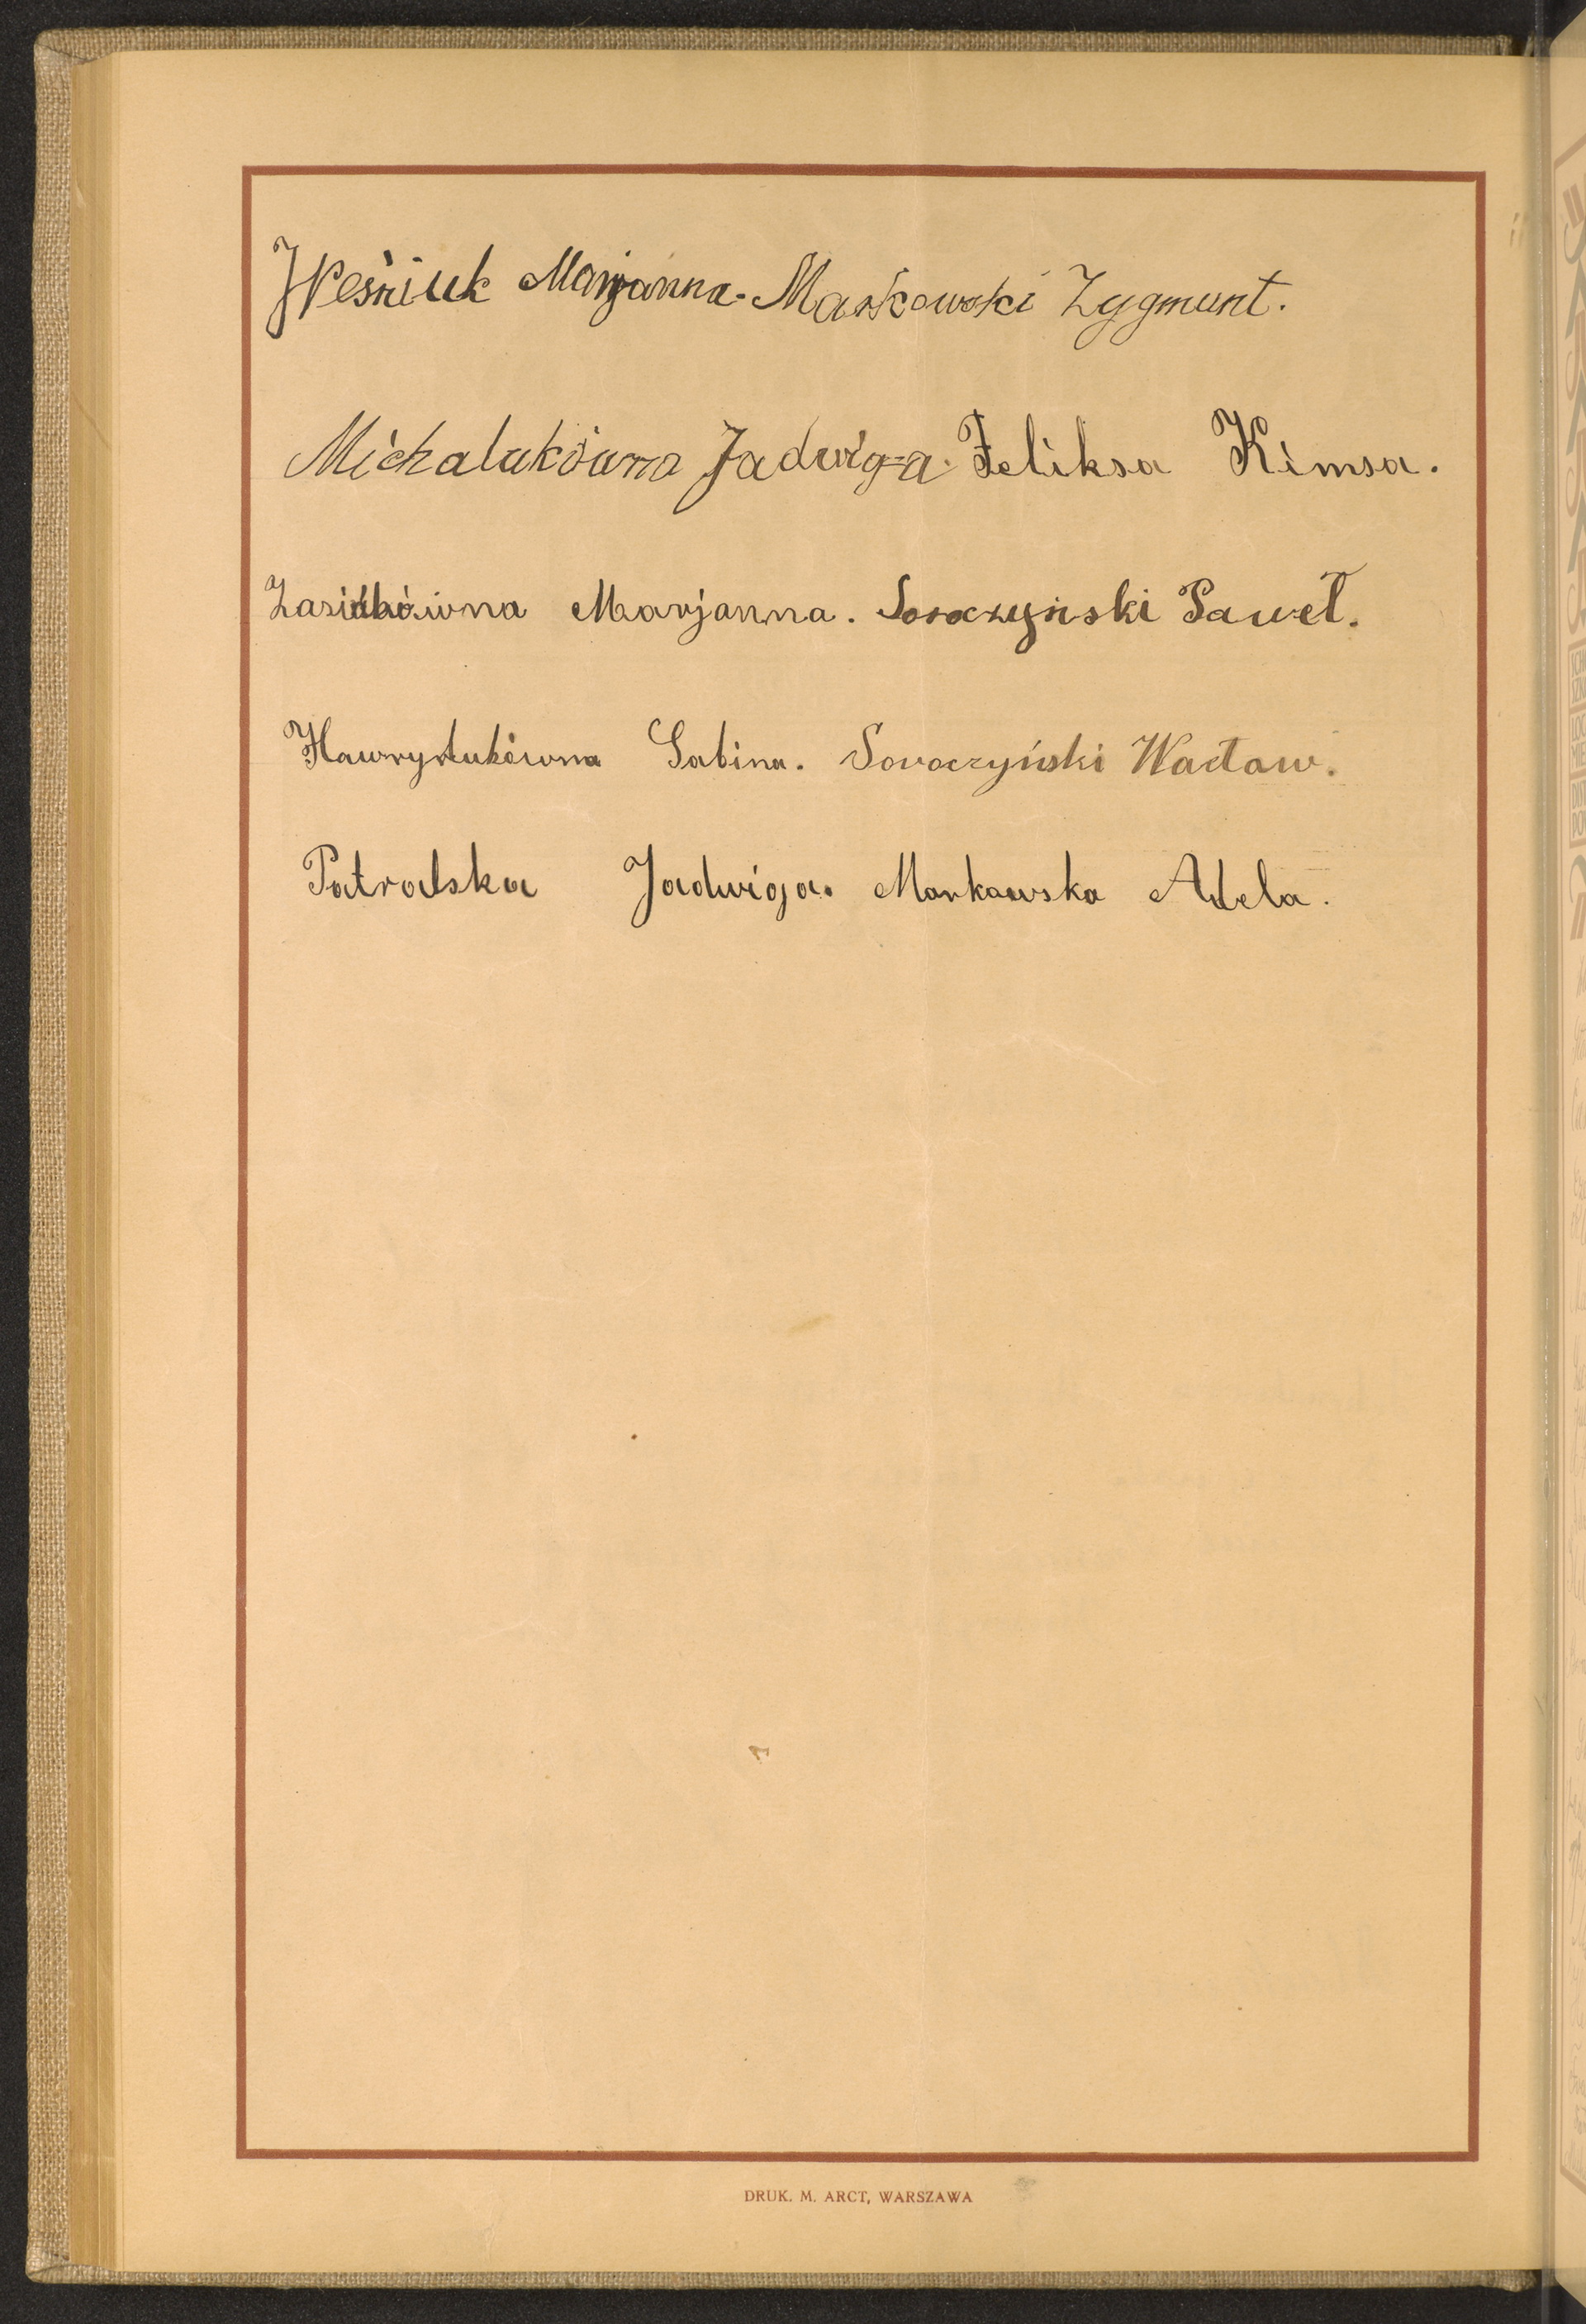 Weśniuk Marjanna. Markowski Zygmunt.
Michalukówna Jadwiga. Feliksa Kimsa.
Marjanna. Soroczyński Paweł.
Hawrylukówna Sabina. Soroczyński Wacław.
Patralska Jadwiga. Markowska Adela.
DRUK. M. ARCT, WARSZAWA